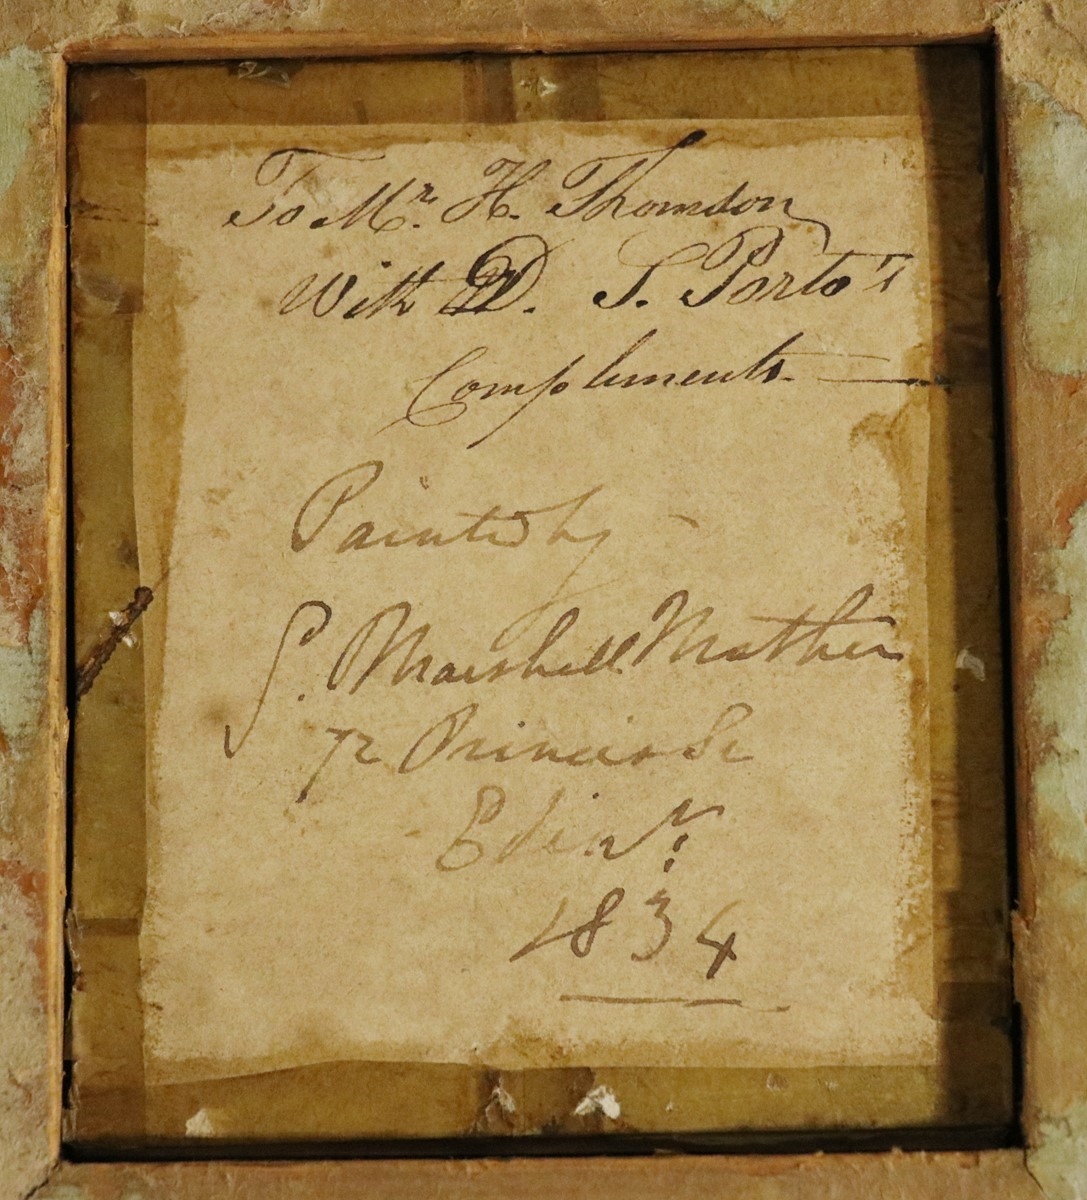 To Mr. H. Thomson
With D. S. Porto's
Compliments
Painted by
J. Marshall Mather
72 Princis St
Edinr.
1834